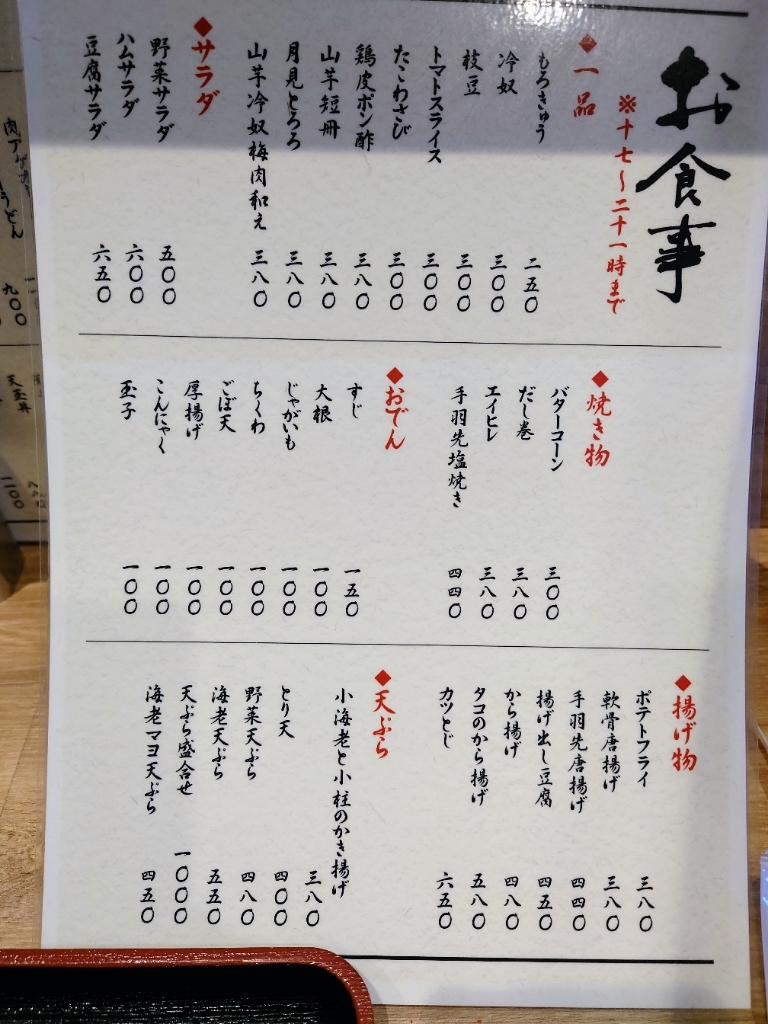 お食事
※十七～二十一時まで
◆一品
もろきゅう 二五〇
冷奴 三〇〇
枝豆 三〇〇
トマトスライス 三〇〇
たこわさび 三〇〇
鶏皮ポン酢 三八〇
山芋短冊 三八〇
月見とろろ 三八〇
山芋冷奴梅肉和え 三八〇
◆サラダ
野菜サラダ 五〇〇
ハムサラダ 六〇〇
豆腐サラダ 六五〇
◆焼き物
バターコーン 三〇〇
だし巻 三八〇
エイヒレ 三八〇
手羽先塩焼き 四四〇
◆おでん
すじ 一五〇
大根 一〇〇
じゃがいも 一〇〇
ちくわ 一〇〇
ごぼ天 一〇〇
厚揚げ 一〇〇
こんにゃく 一〇〇
玉子 一〇〇
◆揚げ物
ポテトフライ 三八〇
軟骨唐揚げ 三八〇
手羽先唐揚げ 四四〇
揚げ出し豆腐 四五〇
から揚げ 四八〇
タコのから揚げ 五八〇
カツとじ 六五〇
◆天ぷら
小海老と小柱のかき揚げ 三八〇
とり天 四〇〇
野菜天ぷら 四八〇
海老天ぷら 五五〇
天ぷら盛合せ 一〇〇〇
海老マヨ天ぷら 四五〇
うどん
九〇〇
天玉丼
一一〇〇